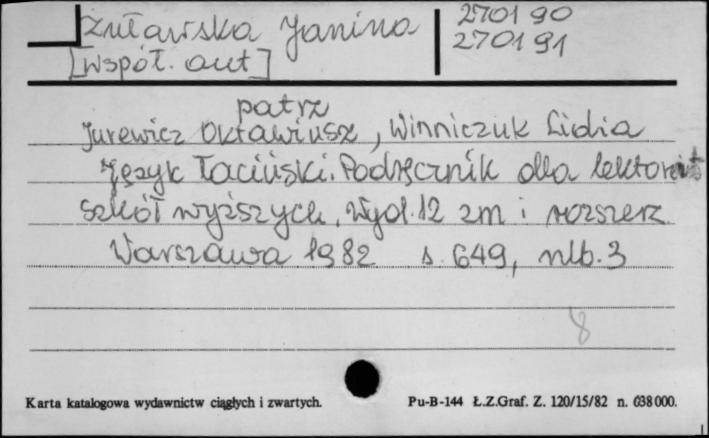 Żuławska Janina
[współ. aut]
270190
270191
patrz
Jurewicz Oktawiusz, Winniczuk Lidia
Język łaciński. Podręcznik dla lektoratów
szkół wyższych. Wyd. 12 zm i rozszerz.
Warszawa 1982 s. 649, nlb. 3
8
Karta katalogowa wydawnictw ciągłych i zwartych. Pu-B-144 Ł.Z.Graf. Z. 120/15/82 n. 638000.